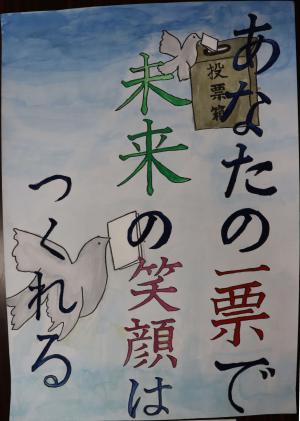 あなたの一票で
未来の笑顔は
つくれる
投票箱